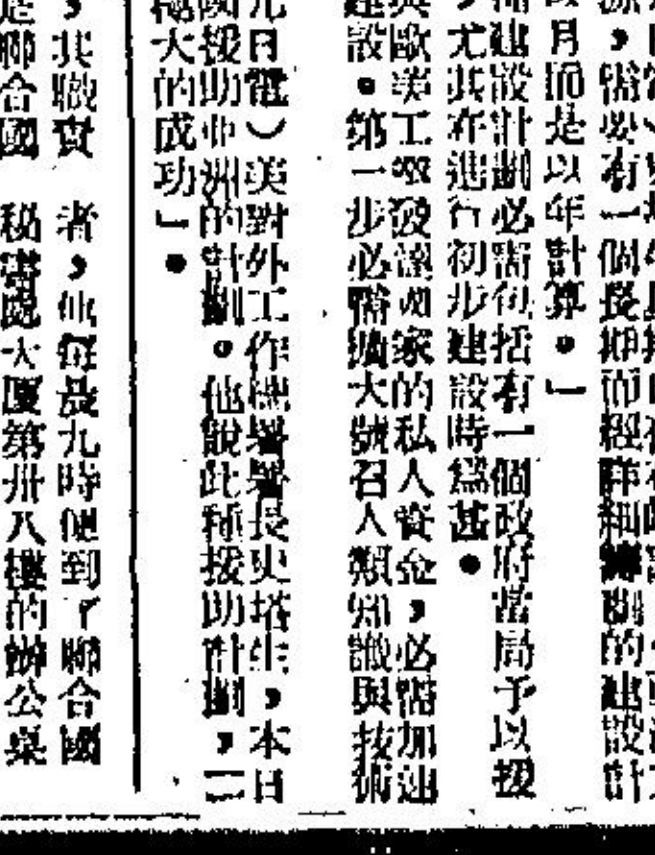 必要有一個長期而經詳細籌劃的建設計
月而是以年計算。」
需建設計劃必需包括有一個政府當局予以援
，尤其在進行初步建設時為甚。
與歐美工業發達國家的私人資金，必需加速
建設。第一步必需擴大號召人類知識與技術
九日電）美對外工作總署署長史塔生，本日
援助亞洲的計劃。他說此種援助計劃，已
極大的成功」。
，其職責
是聯合國
者，他每晨九時便到了聯合國
秘書處大廈第卅八樓的辦公桌